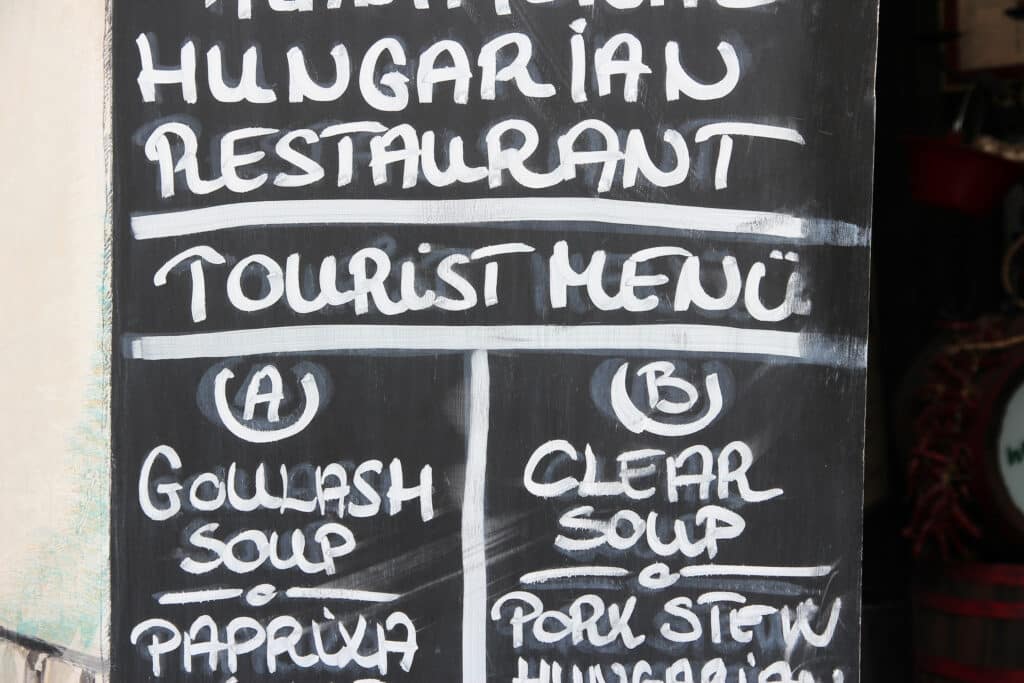 HUNGARIAN
RESTAURANT
TOURIST MENÜ
A
GOULASH
SOUP
PAPRIKA
B
CLEAR
SOUP
PORK STEW
HUNGARIAN